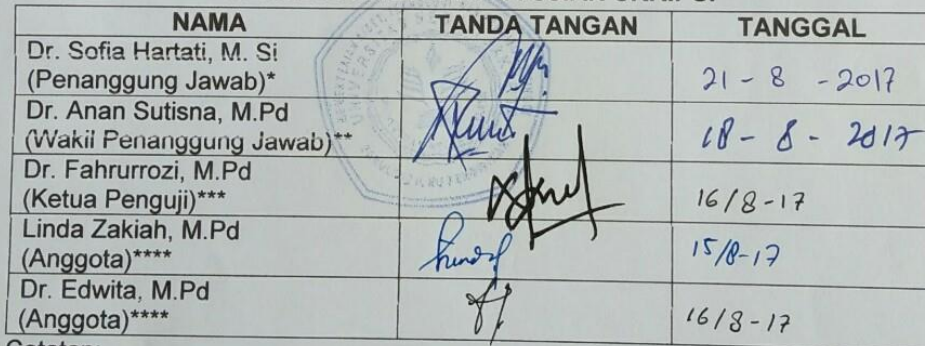 NAMA TANDA TANGAN TANGGAL
Dr. Sofia Hartati, M. Si
(Penanggung Jawab)* 21 - 8 - 2017
Dr. Anan Sutisna, M.Pd
(Wakil Penanggung Jawab)** 18 - 8 - 2017
Dr. Fahrurrozi, M.Pd
(Ketua Penguji)*** 16/8-17
Linda Zakiah, M.Pd
(Anggota)**** 15/8-17
Dr. Edwita, M.Pd
(Anggota)**** 16/8-17